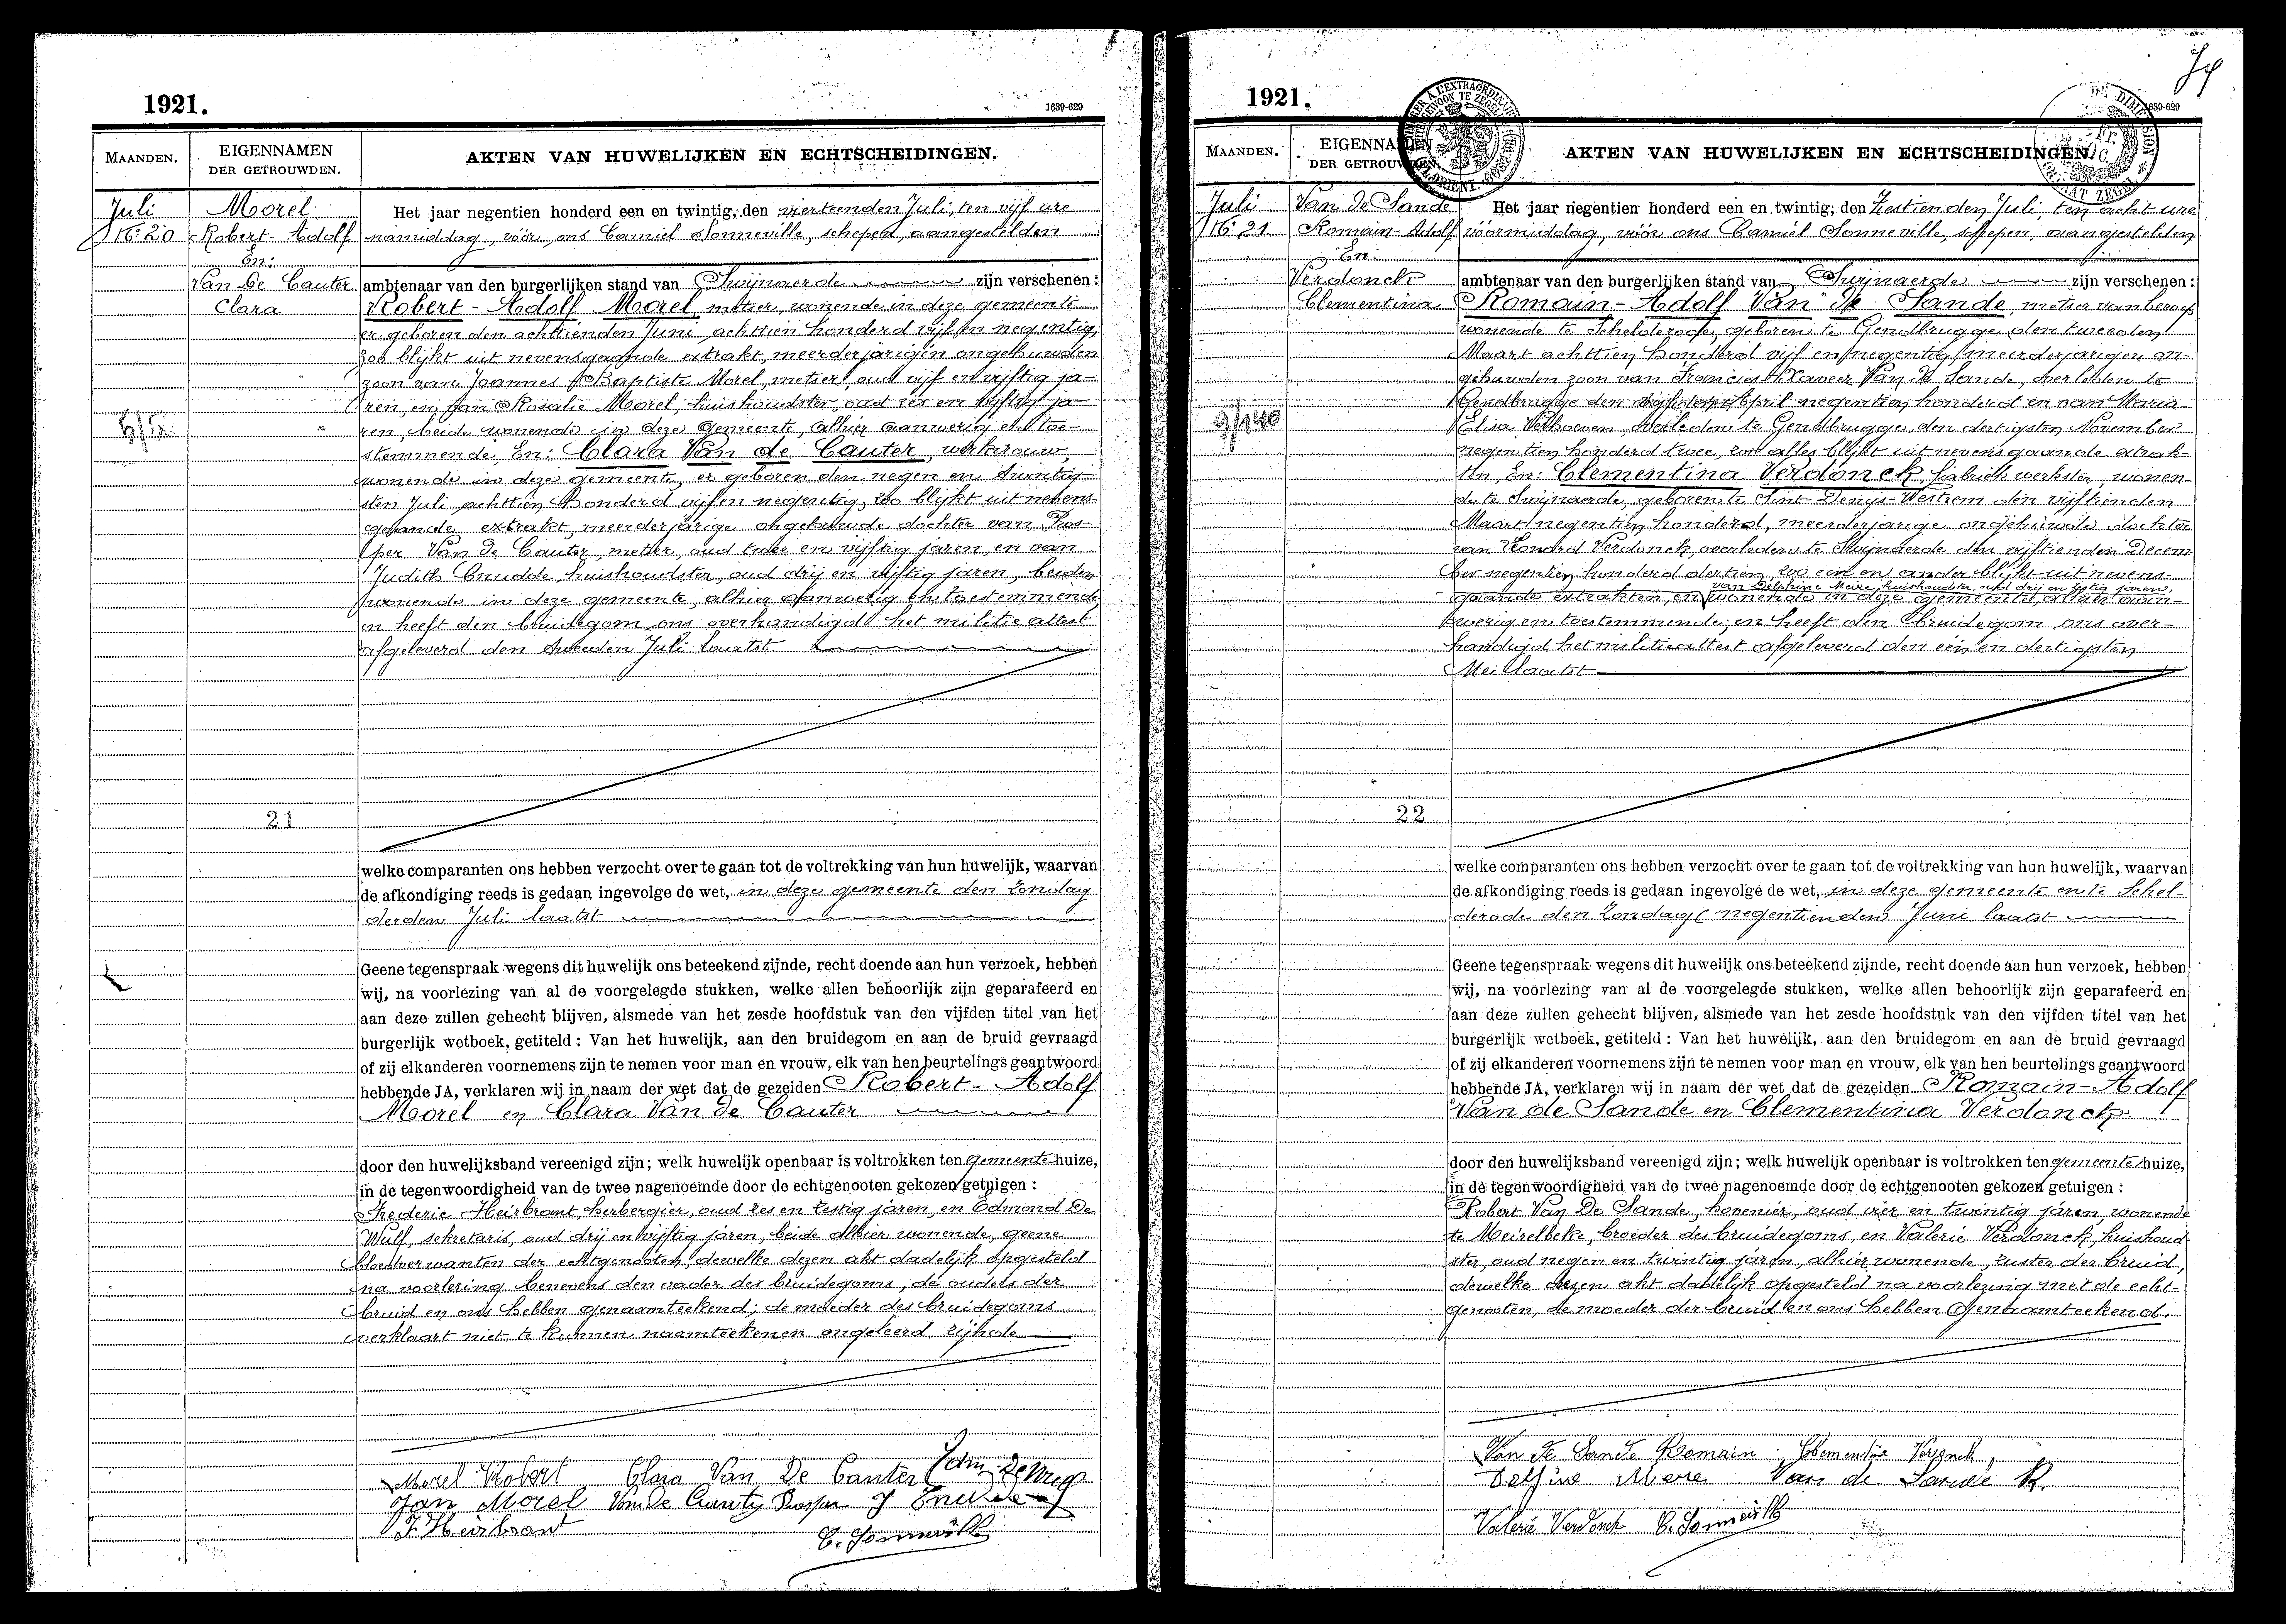 1921.
1639-629
MAANDEN.
EIGENNAMEN
DER GETROUWDEN.
AKTEN VAN HUWELIJKEN EN ECHTSCHEIDINGEN.
Juli
Nº 20
Morel
Robert-Adolf
En:
Van De Cauter
Clara
Het jaar negentien honderd een en twintig, den viertienden Juli, ten vijf ure
namiddag, vóór ons Camiel Sonneville, schepen, aangestelden
ambtenaar van den burgerlijken stand van Swijnaerde zijn verschenen:
Robert-Adolf Morel, metser, wonende in deze gemeente
er geboren den achttienden Juni achttien honderd vijf en negentig,
zoo blijkt uit nevensgaande extrakt, meerderjarigen ongehuwden
zoon van Joannes Baptiste Morel, metser, oud vijf en vijftig ja-
ren, en van Rosalie Morel, huishoudster, oud zes en vijftig ja-
ren, beide wonende in deze gemeente, alhier aanwezig en toe-
stemmende, En: Clara Van de Cauter, werkvrouw,
wonende in deze gemeente, er geboren den negen en twintig-
sten Juli achttien honderd vijf en negentig, zoo blijkt uit nevens-
gaande extrakt, meerderjarige ongehuwde dochter van Pros-
per Van De Cauter, metser, oud twee en vijftig jaren, en van
Judith Cnudde, huishoudster, oud drij en vijftig jaren, beiden
wonende in deze gemeente, alhier aanwezig en toestemmende,
en heeft den bruidegom ons overhandigd het militie attest
afgeleverd den tweeden Juli laatst
21
welke comparanten ons hebben verzocht over te gaan tot de voltrekking van hun huwelijk, waarvan
de afkondiging reeds is gedaan ingevolge de wet, in deze gemeente den Zondag
derden Juli laatst
Geene tegenspraak wegens dit huwelijk ons beteekend zijnde, recht doende aan hun verzoek, hebben
wij, na voorlezing van al de voorgelegde stukken, welke allen behoorlijk zijn geparafeerd en
aan deze zullen gehecht blijven, alsmede van het zesde hoofdstuk van den vijfden titel van het
burgerlijk wetboek, getiteld: Van het huwelijk, aan den bruidegom en aan de bruid gevraagd
of zij elkanderen voornemens zijn te nemen voor man en vrouw, elk van hen beurtelings geantwoord
hebbende JA, verklaren wij in naam der wet dat de gezeiden Robert-Adolf
Morel en Clara Van De Cauter
door den huwelijksband vereenigd zijn; welk huwelijk openbaar is voltrokken ten gemeente huize,
in de tegenwoordigheid van de twee nagenoemde door de echtgenooten gekozen getuigen:
Frederic Heirbrant, herbergier, oud zes en zestig jaren, en Edmond De
Wulf, sekretaris, oud drij en vijftig jaren, beide alhier wonende, geene
bloedverwanten der echtgenooten, dewelke dezen akt dadelijk opgesteld
na voorlezing benevens den vader des bruidegoms, de ouders der
bruid en ons hebben genaamteekend; de moeder des bruidegoms
verklaart niet te kunnen naamteekenen ongeleerd zijnde
Morel Robert Clara Van De Cauter
Jan Morel Van De Cauter Prosper J Cnudde
F. Heirbrant
C. Sonneville
1921.
1639-629
MAANDEN.
EIGENNAMEN
DER GETROUWDEN.
AKTEN VAN HUWELIJKEN EN ECHTSCHEIDINGEN.
Juli
Nº 21
Van de Sande
Romain-Adolf
En:
Verdonck
Clementina
Het jaar negentien honderd een en twintig, den Zestienden Juli, ten acht ure
vóórmiddag, vóór ons Camiel Sonneville, schepen, aangestelden
ambtenaar van den burgerlijken stand van Swijnaerde zijn verschenen:
Romain-Adolf Van de Sande, metser van beroep
wonende te Schelderode, geboren te Gendbrugge den tweeden
Maart achttien honderd vijf en negentig, meerderjarigen on-
gehuwden zoon van Francies Xaveer Van de Sande, overleden te
Gendbrugge den April negentien honderd en van Maria-
Elisa Verhoeven, overleden te Gendbrugge, den dertigsten November
negentien honderd twee, zoo alles blijkt uit nevensgaande extrak-
ten, En: Clementina Verdonck, fabriek werkster, wonen-
de te Swijnaerde, geboren te Sint-Denijs-Westrem den vijftienden
Maart negentien honderd, meerderjarige ongehuwde dochter
van Leonard Verdonck, overleden te Swijnaerde den vijftienden Decem-
ber negentien honderd dertien, zoo een en ander blijkt uit nevens-
van Delphine Meire, huishoudster, oud drij en zestig jaren,
gaande extrakten, en wonende in deze gemeente, alhier aan-
wezig en toestemmende; en heeft den bruidegom ons over-
handigd het militieattest afgeleverd den één en dertigsten
Mei laatst
22
welke comparanten ons hebben verzocht over te gaan tot de voltrekking van hun huwelijk, waarvan
de afkondiging reeds is gedaan ingevolge de wet, in deze gemeente en te Schel-
derode den Zondag negentienden Juni laatst
Geene tegenspraak wegens dit huwelijk ons beteekend zijnde, recht doende aan hun verzoek, hebben
wij, na voorlezing van al de voorgelegde stukken, welke allen behoorlijk zijn geparafeerd en
aan deze zullen gehecht blijven, alsmede van het zesde hoofdstuk van den vijfden titel van het
burgerlijk wetboek, getiteld: Van het huwelijk, aan den bruidegom en aan de bruid gevraagd
of zij elkanderen voornemens zijn te nemen voor man en vrouw, elk van hen beurtelings geantwoord
hebbende JA, verklaren wij in naam der wet dat de gezeiden Romain-Adolf
Van de Sande en Clementina Verdonck
door den huwelijksband vereenigd zijn; welk huwelijk openbaar is voltrokken ten gemeente huize,
in de tegenwoordigheid van de twee nagenoemde door de echtgenooten gekozen getuigen:
Robert Van De Sande, hovenier, oud vier en twintig jaren, wonende
te Meirelbeke, broeder des bruidegoms, en Valerie Verdonck, huishoud-
ster, oud negen en twintig jaren, alhier wonende, zuster der bruid,
dewelke dezen akt dadelijk opgesteld na voorlezing met de echt-
genooten, de moeder der bruid en ons hebben genaamteekend.
Van de Sande Romain Clementine Verdonck,
Delfine Mere Van de Sande R.
Valerie Verdonck C. Sonneville